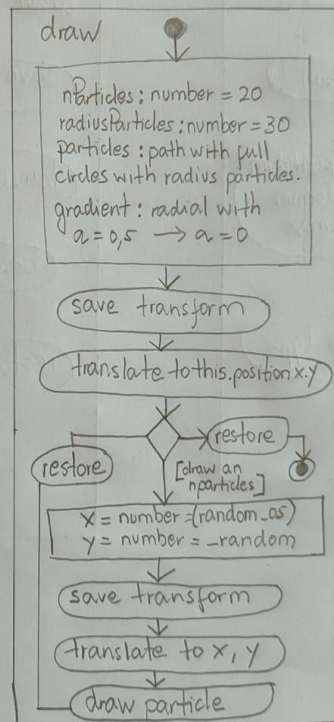 draw
nParticles : number = 20
radiusParticles : number = 30
particles : path with full
circles with radius particles.
gradient : radial with
a = 0,5 → a = 0
save transform
translate to this.position x.y
restore
restore
[draw an
nparticles]
x = number = (random_os)
y = number = _random
save transform
translate to x, y
draw particle